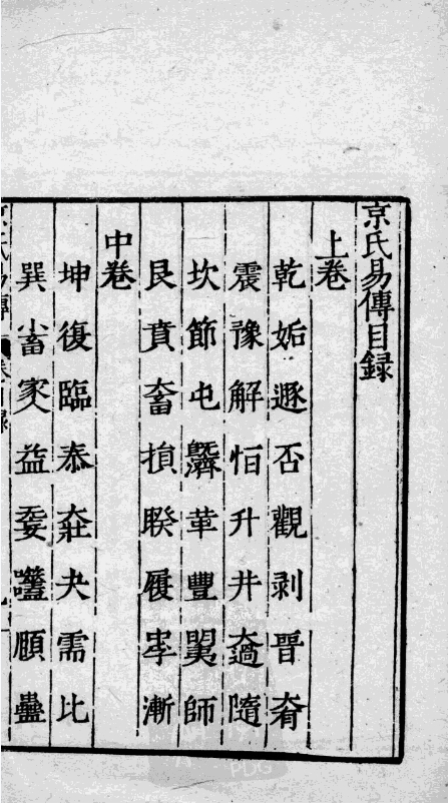 京氏易傳目録
上卷
乾姤遯否觀剥晉大有
震豫解恒升井大過隨
坎節屯既濟革豐明夷師
艮賁大畜損睽履中孚漸
中卷
坤復臨泰大壯夬需比
巽小畜家人益无妄噬嗑頤蠱